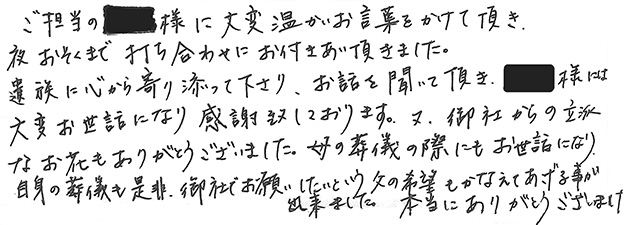 ご担当の様に大変温かいお言葉をかけて頂き、
夜おそくまで打ち合わせにお付きあい頂きました。
遺族に心から寄り添って下さり、お話を聞いて頂き、様には
大変お世話になり感謝致しております。又、御社からの立派
なお花もありがとうございました。母の葬儀の際にもお世話になり
自身の葬儀も是非、御社でお願いしたいという父の希望もかなえてあげる事が
出来ました。本当にありがとうございました